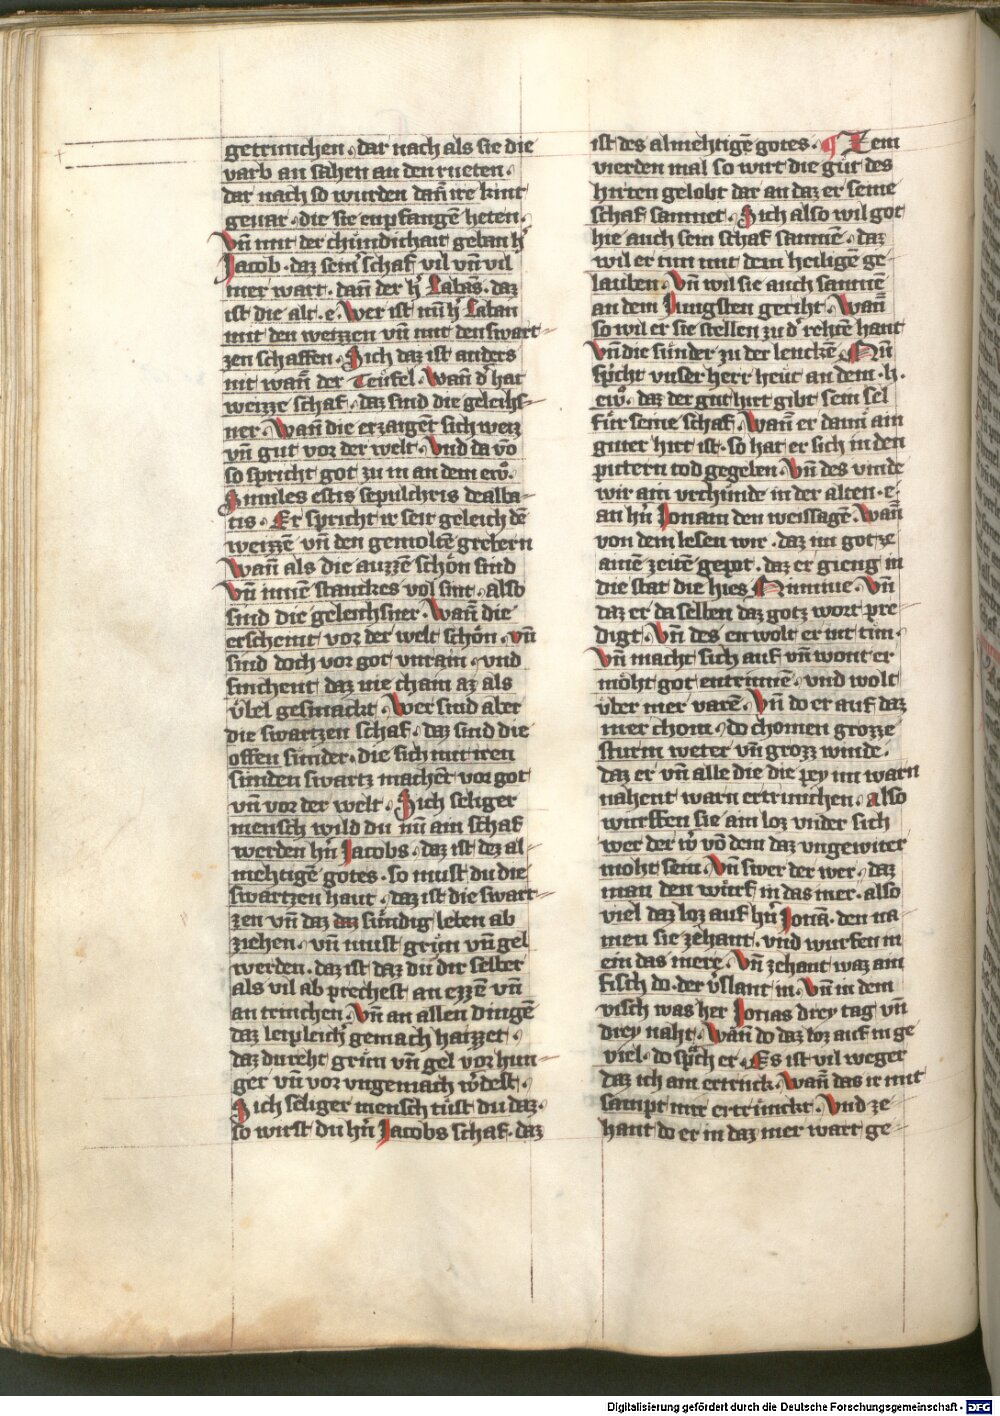 getrunchen · dar nach als sie die
varb an sahen an den rueten ·
dar nach so wurden dañ ire kint
geuar · die sie enpfangē heten ·
vñ mit der chündichait geban h̾
Jacob · daz sein̾ schaf vil vñ vil
mer wart · dañ der h̾ Labās · daz
ist die alt · e · Wer ist nū h̾ Laban
mit den weizzen vñ mit den swart-
zen schaffen · Sich daz ist anders
nit wañ der Teufel · wañ d̾ hat
weizze schaf · daz sind die geleihs-
ner · Wañ die erzaigēt sich weiz
vñ gut vor der welt · Vnd da vō
so spricht got zu in an dem ewō ·
Similes estis sepulchris dealba-
tis · Er spricht ir seit geleich dē
weizzē vñ den gemoltē grebern
Wañ als die auzzē schön sind
Vñ innē stanckes vol sint · also
sind die geleichsner · Wañ die
erscheint vor der welt schön · vñ
sind doch vor got vnrain · vnd
stinchent daz nie cham az als
übel gesmackt · Wer sind aber
die swartzen schaf · daz sind die
offen sünder · die sich mit iren
sünden swartz machēt vor got
vñ vor der welt · Sich seliger
mensch wild du nū ain schaf
werden hn̄ Jacobs · daz ist dez al-
mehtigē gotes · so must du die
swartzen haut · daz ist die swart-
zen vñ daz daz sündig leben ab
ziehen · vñ must grün vñ gel
werden · daz ist daz du dir selber
als vil ab prechest an ezzē vñ
an trinchen · Vñ an allen dingē
daz leipleich gemach haizzet ·
daz du reht grün vñ gel vor hun-
ger vñ vor vngemach w̾dest ·
Sich seliger mensch tüst du daz ·
so wirst du hn̄ Jacobs schaf · daz
ist des almehtigē gotes · ¶ Zem
vierden mal so wirt die güt des
hirten gelobt dar an daz er seine
schaf samnet · Sich also wil got
hie auch sein schaf samnē · daz
wil er tun mit dem heiligē ge-
lauben · Vñ wil sie auch samnē
an dem Jungsten geriht · Wañ
so wil er sie stellen zu d̾ rehtē hant
Vñ die sünder zu der lenckē · Nū
spricht vnser herr heut an dem · h ·
ewō · daz der gut hirt gibt sein sel
für seine schaf · Wañ er dañ ain
guter hirt ist · so hat er sich in den
pittern tod gegeben · Vñ des vinde
wir ain vrchünde in der alten · e ·
an hn̄ Jonam den weissagē · Wañ
von dem lesen wir · daz im got ze
ainē zeitē gepot · daz er gieng in
die stat die hies Niniue · Vñ
daz er da selben daz gotz wort pre-
digt · Vñ des en wolt er nit tun ·
Vñ macht sich auf vñ wont er
möht got entrinnē · vnd wolt
über mer varē · Vñ do er auf daz
mer chom · do chomen grozze
sturm weter vñ grozz winde ·
daz er vñ alle die die pey im warn
nahent warn ertrunchen · also
wurffen sie ain loz vnder sich
wer der w̾ vō dem daz vngewiter
moht sein · Vñ swer der wer · daz
man den würf in das mer · also
viel daz loz auf hn̄ Jonā · den na-
men sie zehant · vnd wurfen in
ein das mere · Vñ zehant waz ain
fisch do · der v̾slant in · Vñ in dem
visch was her Jonas drey tag vñ
drey naht · Wañ do daz loz auf in ge
viel · do sprach er · Es ist vil weger
daz ich ain ertrinck · Wañ das ir mit
sampt mir ertrünckt · Vnd ze-
hant do er in daz mer wart ge-
Digitalisierung gefördert durch die Deutsche Forschungsgemeinschaft - DFG